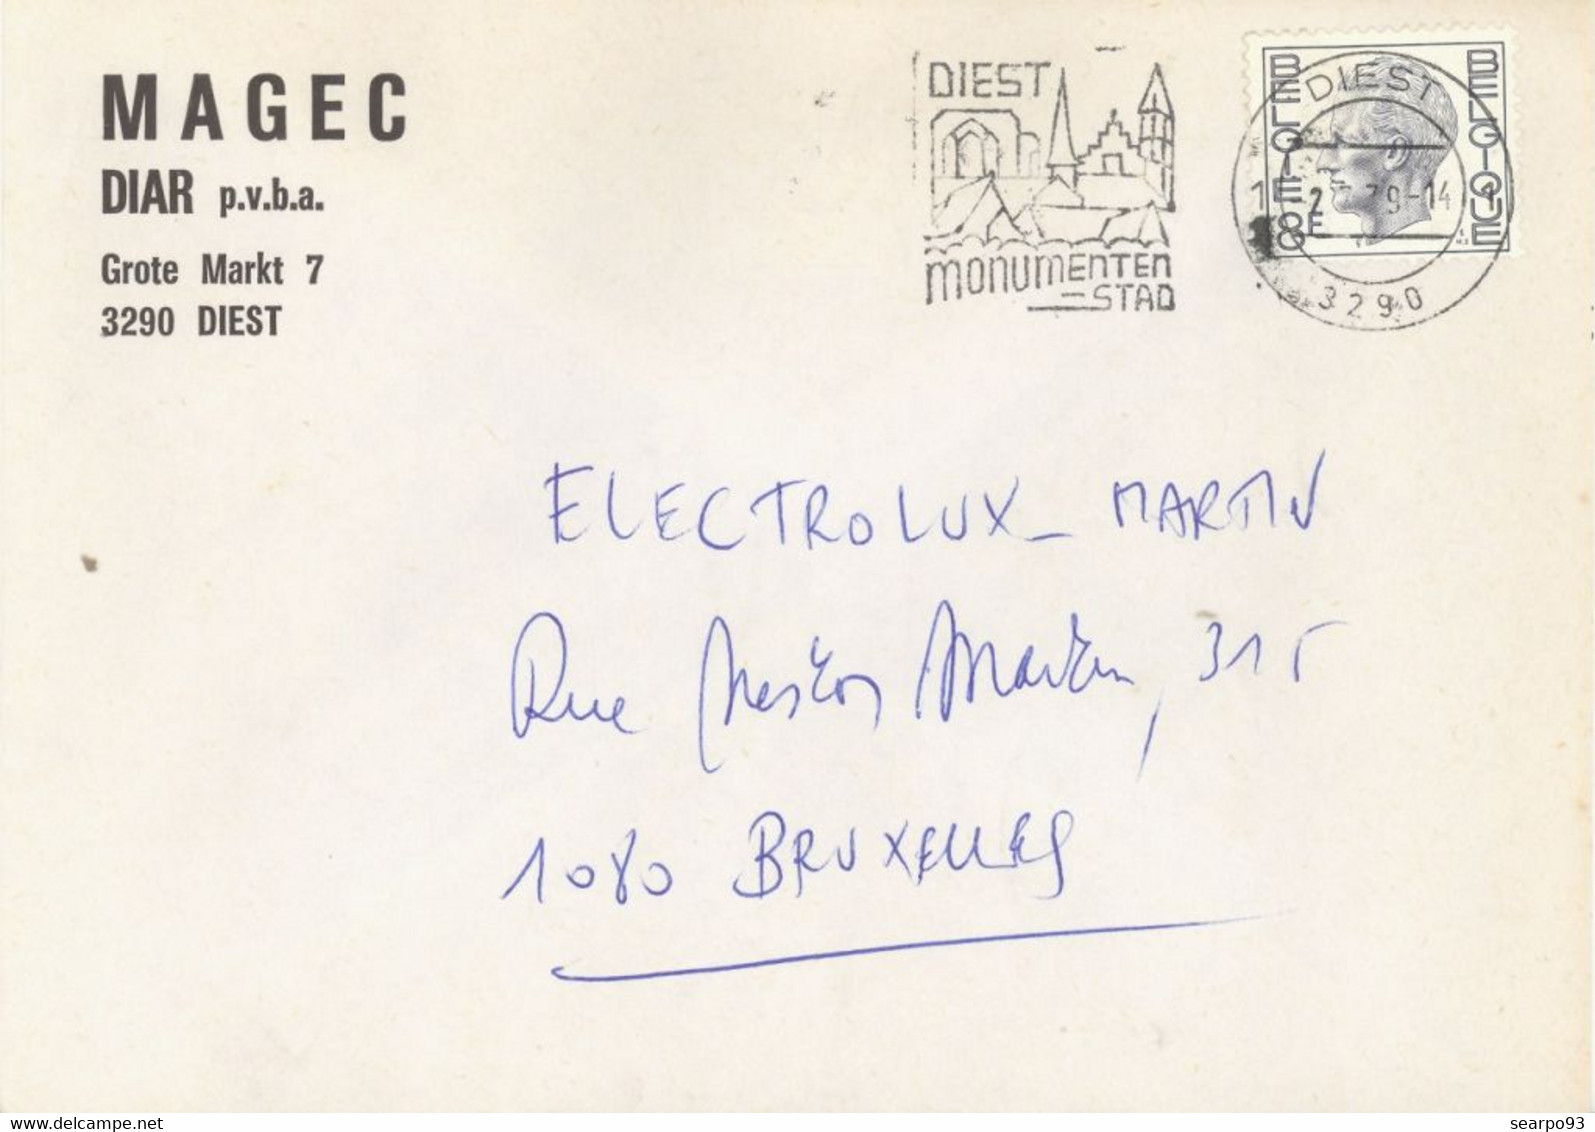 MAGEC
DIAR p.v.b.a.
Grote Markt 7
3290 DIEST
DIEST
MONUMENTEN
-STAD
BELGIE
BELGIQUE
8F
DIEST
3290
ELECTROLUX - MARTIN
Rue Nestor Martin, 315
1080 BRUXELLES
www.delcampe.net
searpo93